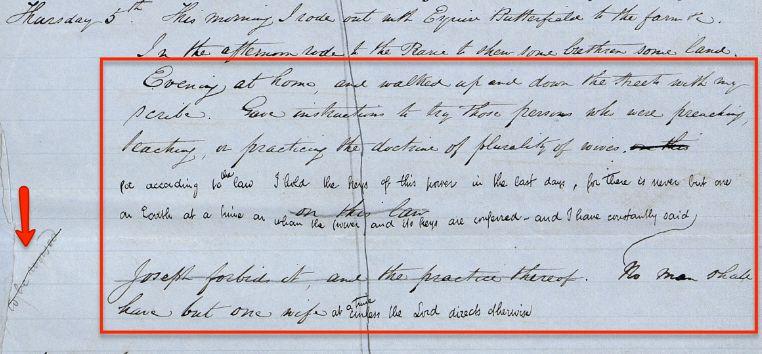 Thursday 5th This morning I rode out with Esquire Butterfield to the farm &c.
In the afternoon rode to the Prairie to shew some brethren some land.
Evening, at home, and walked up and down the streets with my
scribe. Gave instructions to try those persons who were preaching,
teaching, or practicing the doctrine of plurality of wives. on this
for according to the law I hold the keys of this power in the last days, for there is never but one
on Earth at a time on whom the power and its keys are conferred – and I have constantly said
on this law
to be revised
Joseph forbids it, and the practice thereof. No man shall
have but one wife at a time unless the Lord directs otherwise